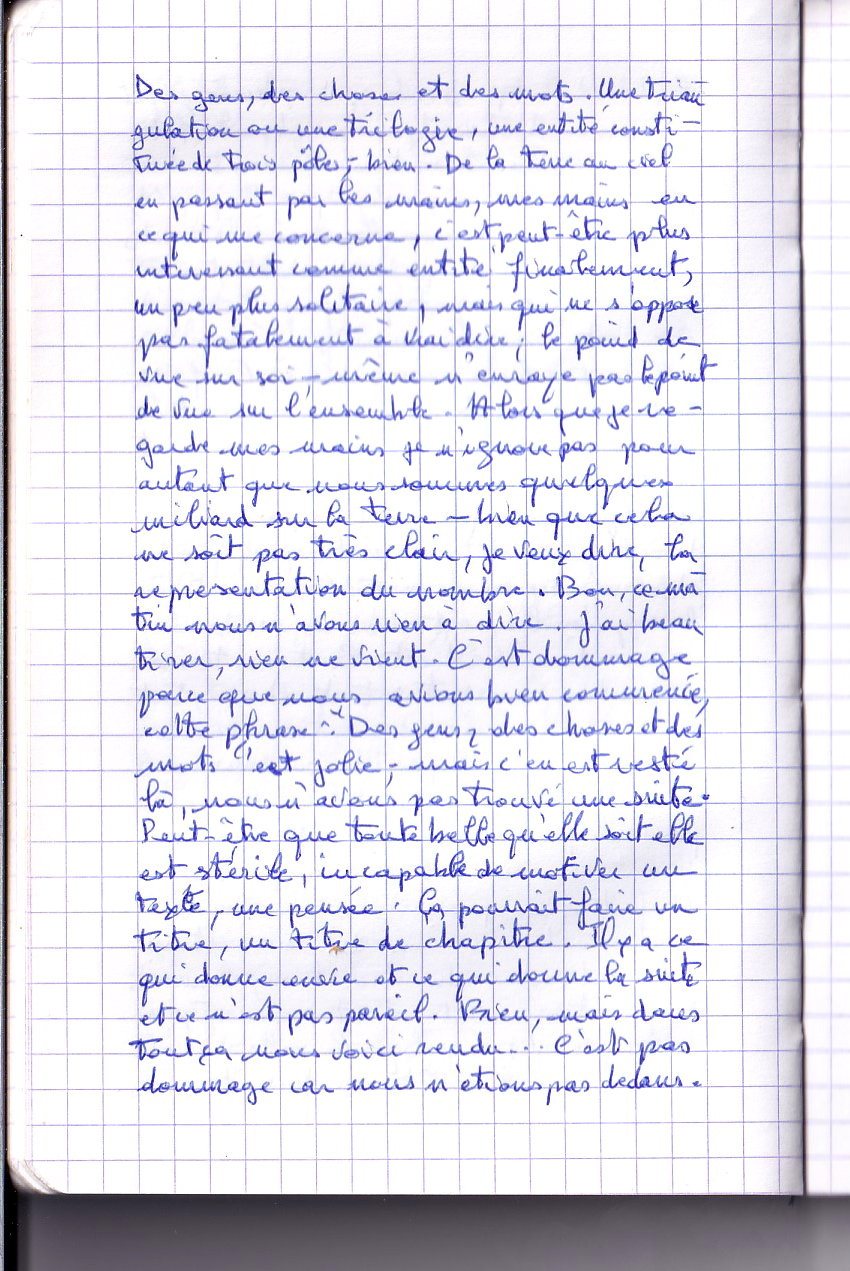 Des gens, des choses et des mots. Une trian
gulation ou une trilogie, une entité consti-
tuée de trois pôles, bien. De la terre au ciel
en passant par les mains, mes mains en
ce qui me concerne, c'est peut-être plus
interessant comme entité finalement,
un peu plus solitaire, mais qui ne s'oppose
pas fatalement à vrai dire ; le point de
vue sur soi-même n'enraye pas le point
de vue sur l'ensemble. Alors que je re-
garde mes mains je n'ignore pas pour
autant que nous sommes quelques
milliard sur la terre – bien que cela
ne soit pas très clair, je veux dire, la
representation du nombre. Bon, ce ma
tin nous n'avons rien à dire. J'ai beau
tirer, rien ne vient. C'est dommage
parce que nous avions bien commencé,
cette phrase : "Des gens, des choses et des
mots" c'est jolie, mais c'en est resté
là, nous n'avons pas trouvé une suite.
Peut-être que toute belle qu'elle soit elle
est stérile, incapable de motiver un
texte, une pensée. Ça pourrait faire un
titre, un titre de chapitre. Il y a ce
qui donne envie et ce qui donne la suite
et ce n'est pas pareil. Bien, mais dans
tout ça nous voici rendu... C'est pas
dommage car nous n'étions pas dedans.